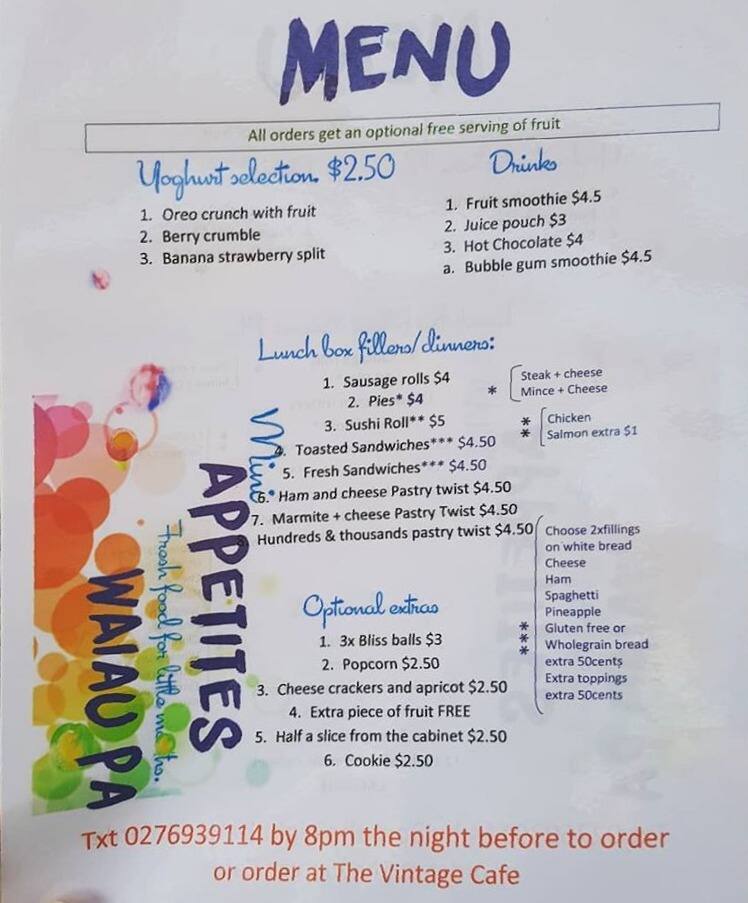 MENU
All orders get an optional free serving of fruit
Yoghurt selection. $2.50
1. Oreo crunch with fruit
2. Berry crumble
3. Banana strawberry split
Drinks
1. Fruit smoothie $4.5
2. Juice pouch $3
3. Hot Chocolate $4
a. Bubble gum smoothie $4.5
Lunch box fillers/dinners:
1. Sausage rolls $4
2. Pies* $4
3. Sushi Roll** $5
4. Toasted Sandwiches*** $4.50
5. Fresh Sandwiches*** $4.50
6. Ham and cheese Pastry twist $4.50
7. Marmite + cheese Pastry Twist $4.50
Hundreds & thousands pastry twist $4.50
*
Steak + cheese
Mince + Cheese
**
Chicken
Salmon extra $1
***
Choose 2xfillings
on white bread
Cheese
Ham
Spaghetti
Pineapple
Gluten free or
Wholegrain bread
extra 50cents
Extra toppings
extra 50cents
Mini
APPETITES
Fresh food for little mouths.
WAIAU PA
Optional extras
1. 3x Bliss balls $3
2. Popcorn $2.50
3. Cheese crackers and apricot $2.50
4. Extra piece of fruit FREE
5. Half a slice from the cabinet $2.50
6. Cookie $2.50
Txt 0276939114 by 8pm the night before to order
or order at The Vintage Cafe